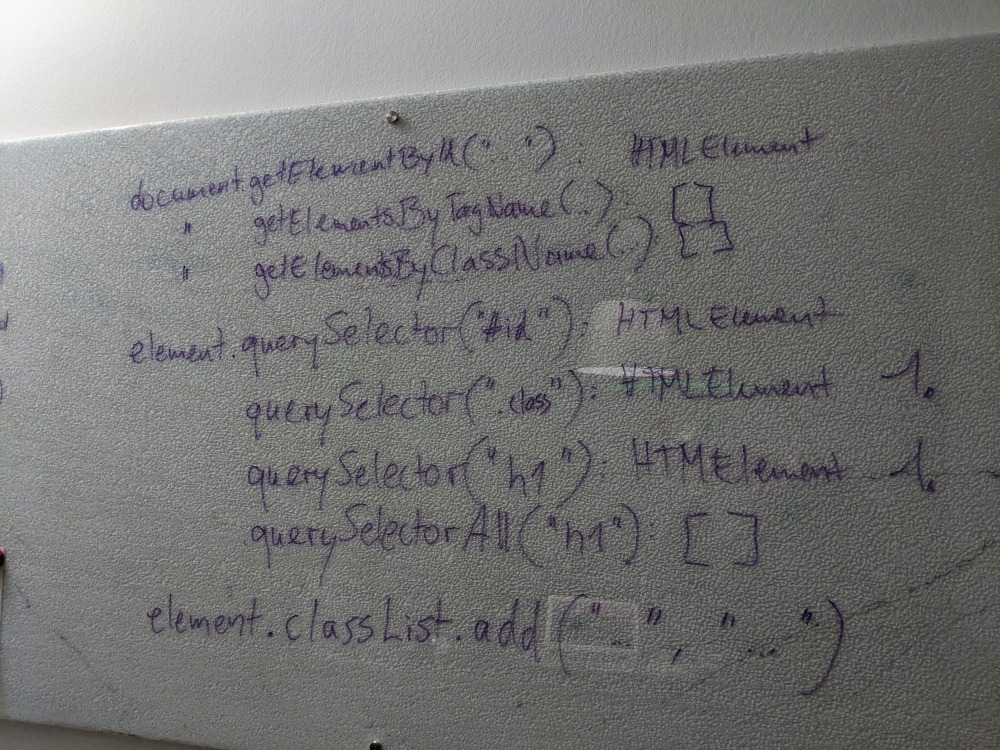 document.getElementById(".."): HTMLElement
" getElementsByTagName(..): []
" getElementsByClassName(..): []
element.querySelector("#id"): HTMLElement
querySelector(".class"): HTMLElement 1.
querySelector("h1"): HTMElement 1.
querySelectorAll("h1"): []
element.classList.add("...", "...")